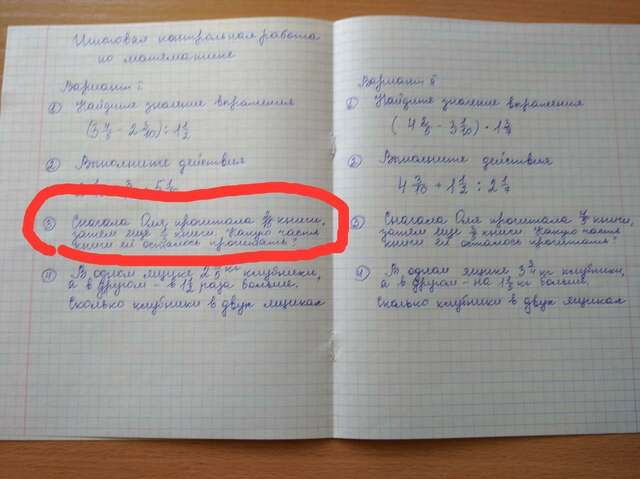 Итоговая контрольная работа
по математике
Вариант I
1 Найдите значение выражения
2 Выполните действия
3 Сначала Оля прочитала книги,
затем еще книги. Какую часть
книги ей осталось прочитать?
4 В одном ящике кг клубники,
а в другом - в 1 1/2 раза больше.
Сколько клубники в двух ящиках
Вариант
1 Найдите значение выражения
2 Выполните действия
4 3/10 + 1 1/2 : 2 1/7
3 Сначала Оля прочитала книги,
затем еще книги. Какую часть
книги ей осталось прочитать?
4 В одном ящике кг клубники,
а в другом - на кг больше.
Сколько клубники в двух ящиках